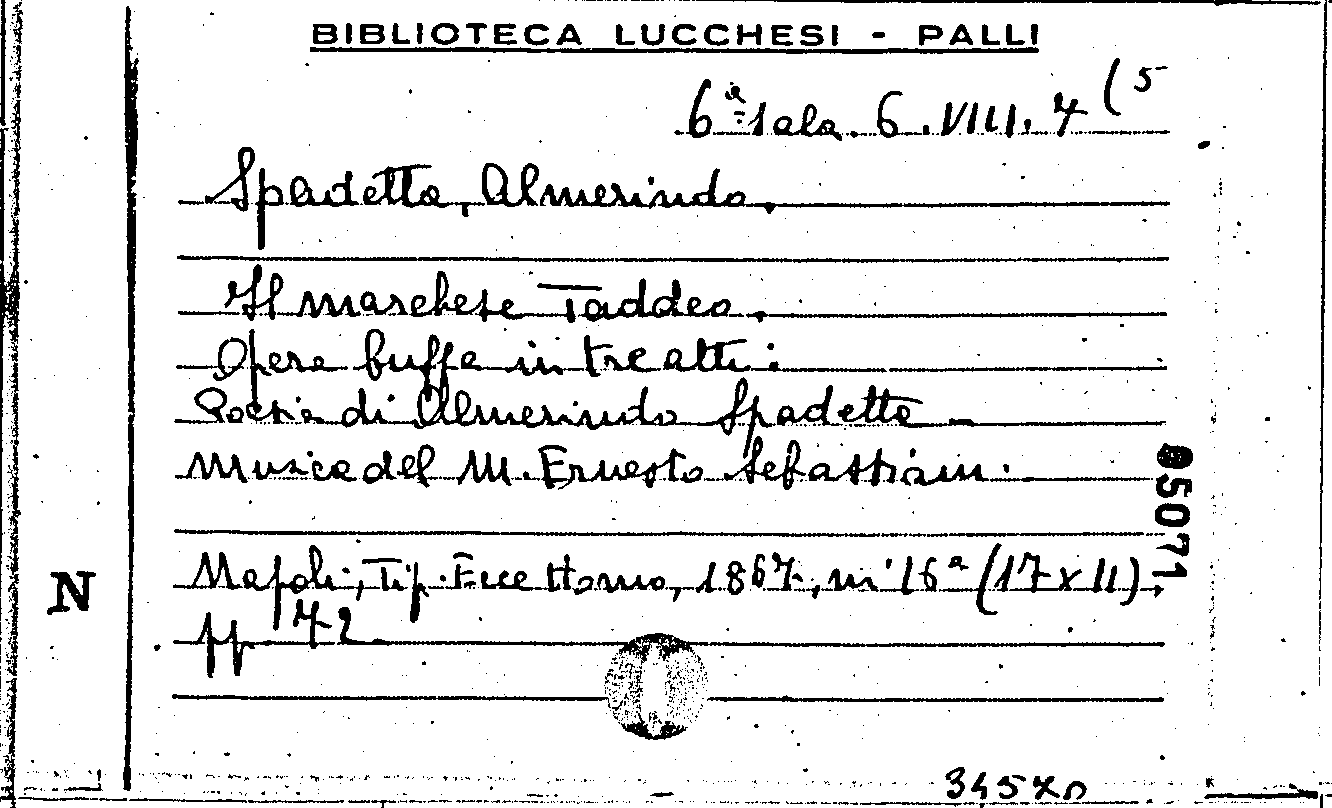 BIBLIOTECA LUCCHESI - PALLI
6ª sala. 6. VIII. 7 (5
Spadetta, Almerindo.
Il marchese Taddeo.
Opera buffa in tre atti:
Poesia di Almerindo Spadetta -
Musica del M. Ernesto Sebastiani.
Napoli, Tip. Ecce Homo, 1867, in 16ª (17 x 11),
pp 72
N
85071